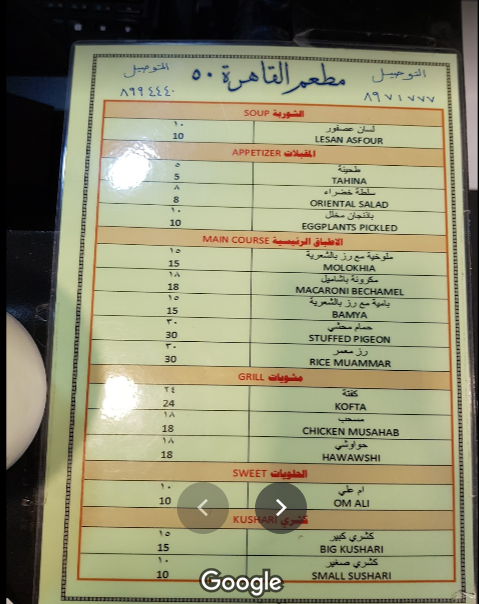 التوصيل مطعم القاهرة ٥٠ التوصيل
٨٩٧١٧٧٧ ٨٩٩٤٤٤٠
SOUP الشوربة
لسان عصفور ١٠
LESAN ASFOUR 10
APPETIZER المقبلات
طحينة ٥
TAHINA 5
سلطة خضراء ٨
ORIENTAL SALAD 8
باذنجان مخلل ١٠
EGGPLANTS PICKLED 10
MAIN COURSE الاطباق الرئيسية
ملوخية مع رز بالشعرية ١٥
MOLOKHIA 15
مكرونة باشاميل ١٨
MACARONI BECHAMEL 18
بامية مع رز بالشعرية ١٥
BAMYA 15
حمام محشي ٣٠
STUFFED PIGEON 30
رز معمر ٣٠
RICE MUAMMAR 30
GRILL مشويات
كفتة ٢٤
KOFTA 24
مسحب ١٨
CHICKEN MUSAHAB 18
حواوشي ١٨
HAWAWSHI 18
SWEET الحلويات
ام علي ١٠
OM ALI 10
KUSHARI كشري
كشري كبير ١٥
BIG KUSHARI 15
كشري صغير ١٠
SMALL SUSHARI 10
Google